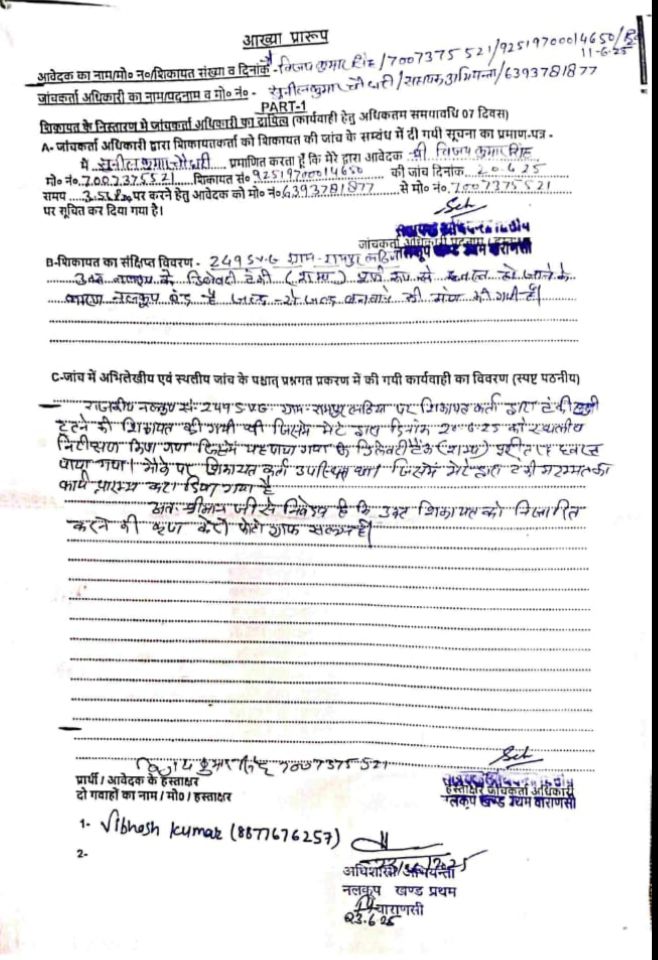 आख्या प्रारूप
आवेदक का नाम/मो० न०/शिकायत संख्या व दिनांक - विजय कुमार सिंह /7007375521/92519700014650/
11-6-25
जांचकर्ता अधिकारी का नाम/पदनाम व मो० न० - सुनील कुमार चौधरी/सहायक अभियन्ता/6393781877
PART-1
शिकायत के निस्तारण में जांचकर्ता अधिकारी का दायित्व (कार्यवाही हेतु अधिकतम समयावधि 07 दिवस)
A- जांचकर्ता अधिकारी द्वारा शिकायतकर्ता को शिकायत की जांच के सम्बंध में दी गयी सूचना का प्रमाण-पत्र -
में सुनील कुमार चौधरी प्रमाणित करता हूँ कि मेरे द्वारा आवेदक श्री विजय कुमार सिंह
मो० नं० 7007375521 शिकायत सं० 92519700014650 की जांच दिनांक 20.6.25
समय पर करने हेतु आवेदक को मो० नं० 6393781877 से मो० नं० 7007375521
पर सूचित कर दिया गया है।
जांचकर्ता अधिकारी पदनाम/हस्ताक्षर
नलकूप खण्ड प्रथम वाराणसी
B-शिकायत का संक्षिप्त विवरण - 249 ग्राम- रामपुर
उक्त नलकूप के डिलेवरी टंकी पूर्ण रूप से ध्वस्त हो जाने के
कारण नलकूप बंद है जल्द से जल्द बनवाने की मांग की गयी है।
C-जांच में अभिलेखीय एवं स्थलीय जांच के पश्चात् प्रश्नगत प्रकरण में की गयी कार्यवाही का विवरण (स्पष्ट पठनीय)
राजकीय नलकूप सं० 249 ग्राम- रामपुर पर शिकायत कर्ता द्वारा टंकी
टूटने की शिकायत की गयी थी जिसमें मेरे द्वारा दिनांक 20-6-25 को स्थलीय
निरीक्षण किया गया जिसमें यह पाया गया कि डिलेवरी टैंक ध्वस्त
पाया गया। मौके पर शिकायत कर्ता उपस्थित था। जिसमें मेरे द्वारा टंकी मरम्मत का
कार्य प्रारम्भ करा दिया गया है
अतः श्रीमान जी से निवेदन है कि उक्त शिकायत को निस्तारित
करने की कृपा करें। फोटो ग्राफ संलग्न है।
विजय कुमार सिंह 7007375521
प्रार्थी / आवेदक के हस्ताक्षर
हस्ताक्षर जांचकर्ता अधिकारी
दो गवाहों का नाम / मो० / हस्ताक्षर
नलकूप खण्ड प्रथम वाराणसी
1- Vibhash Kumar (8877676257)
2-
अधिशासी अभियन्ता
नलकूप खण्ड प्रथम
वाराणसी
23.6.25